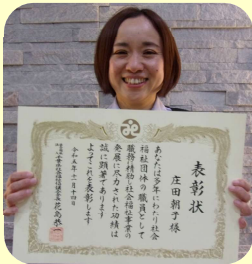 表彰状
庄田朝子様
あなたは多年にわたり社会
福祉団体の職員として
職務に精励し社会福祉事業の
発展に尽力された功績は
誠に顕著であります
よってこれを表彰します
令和五年十一月十四日